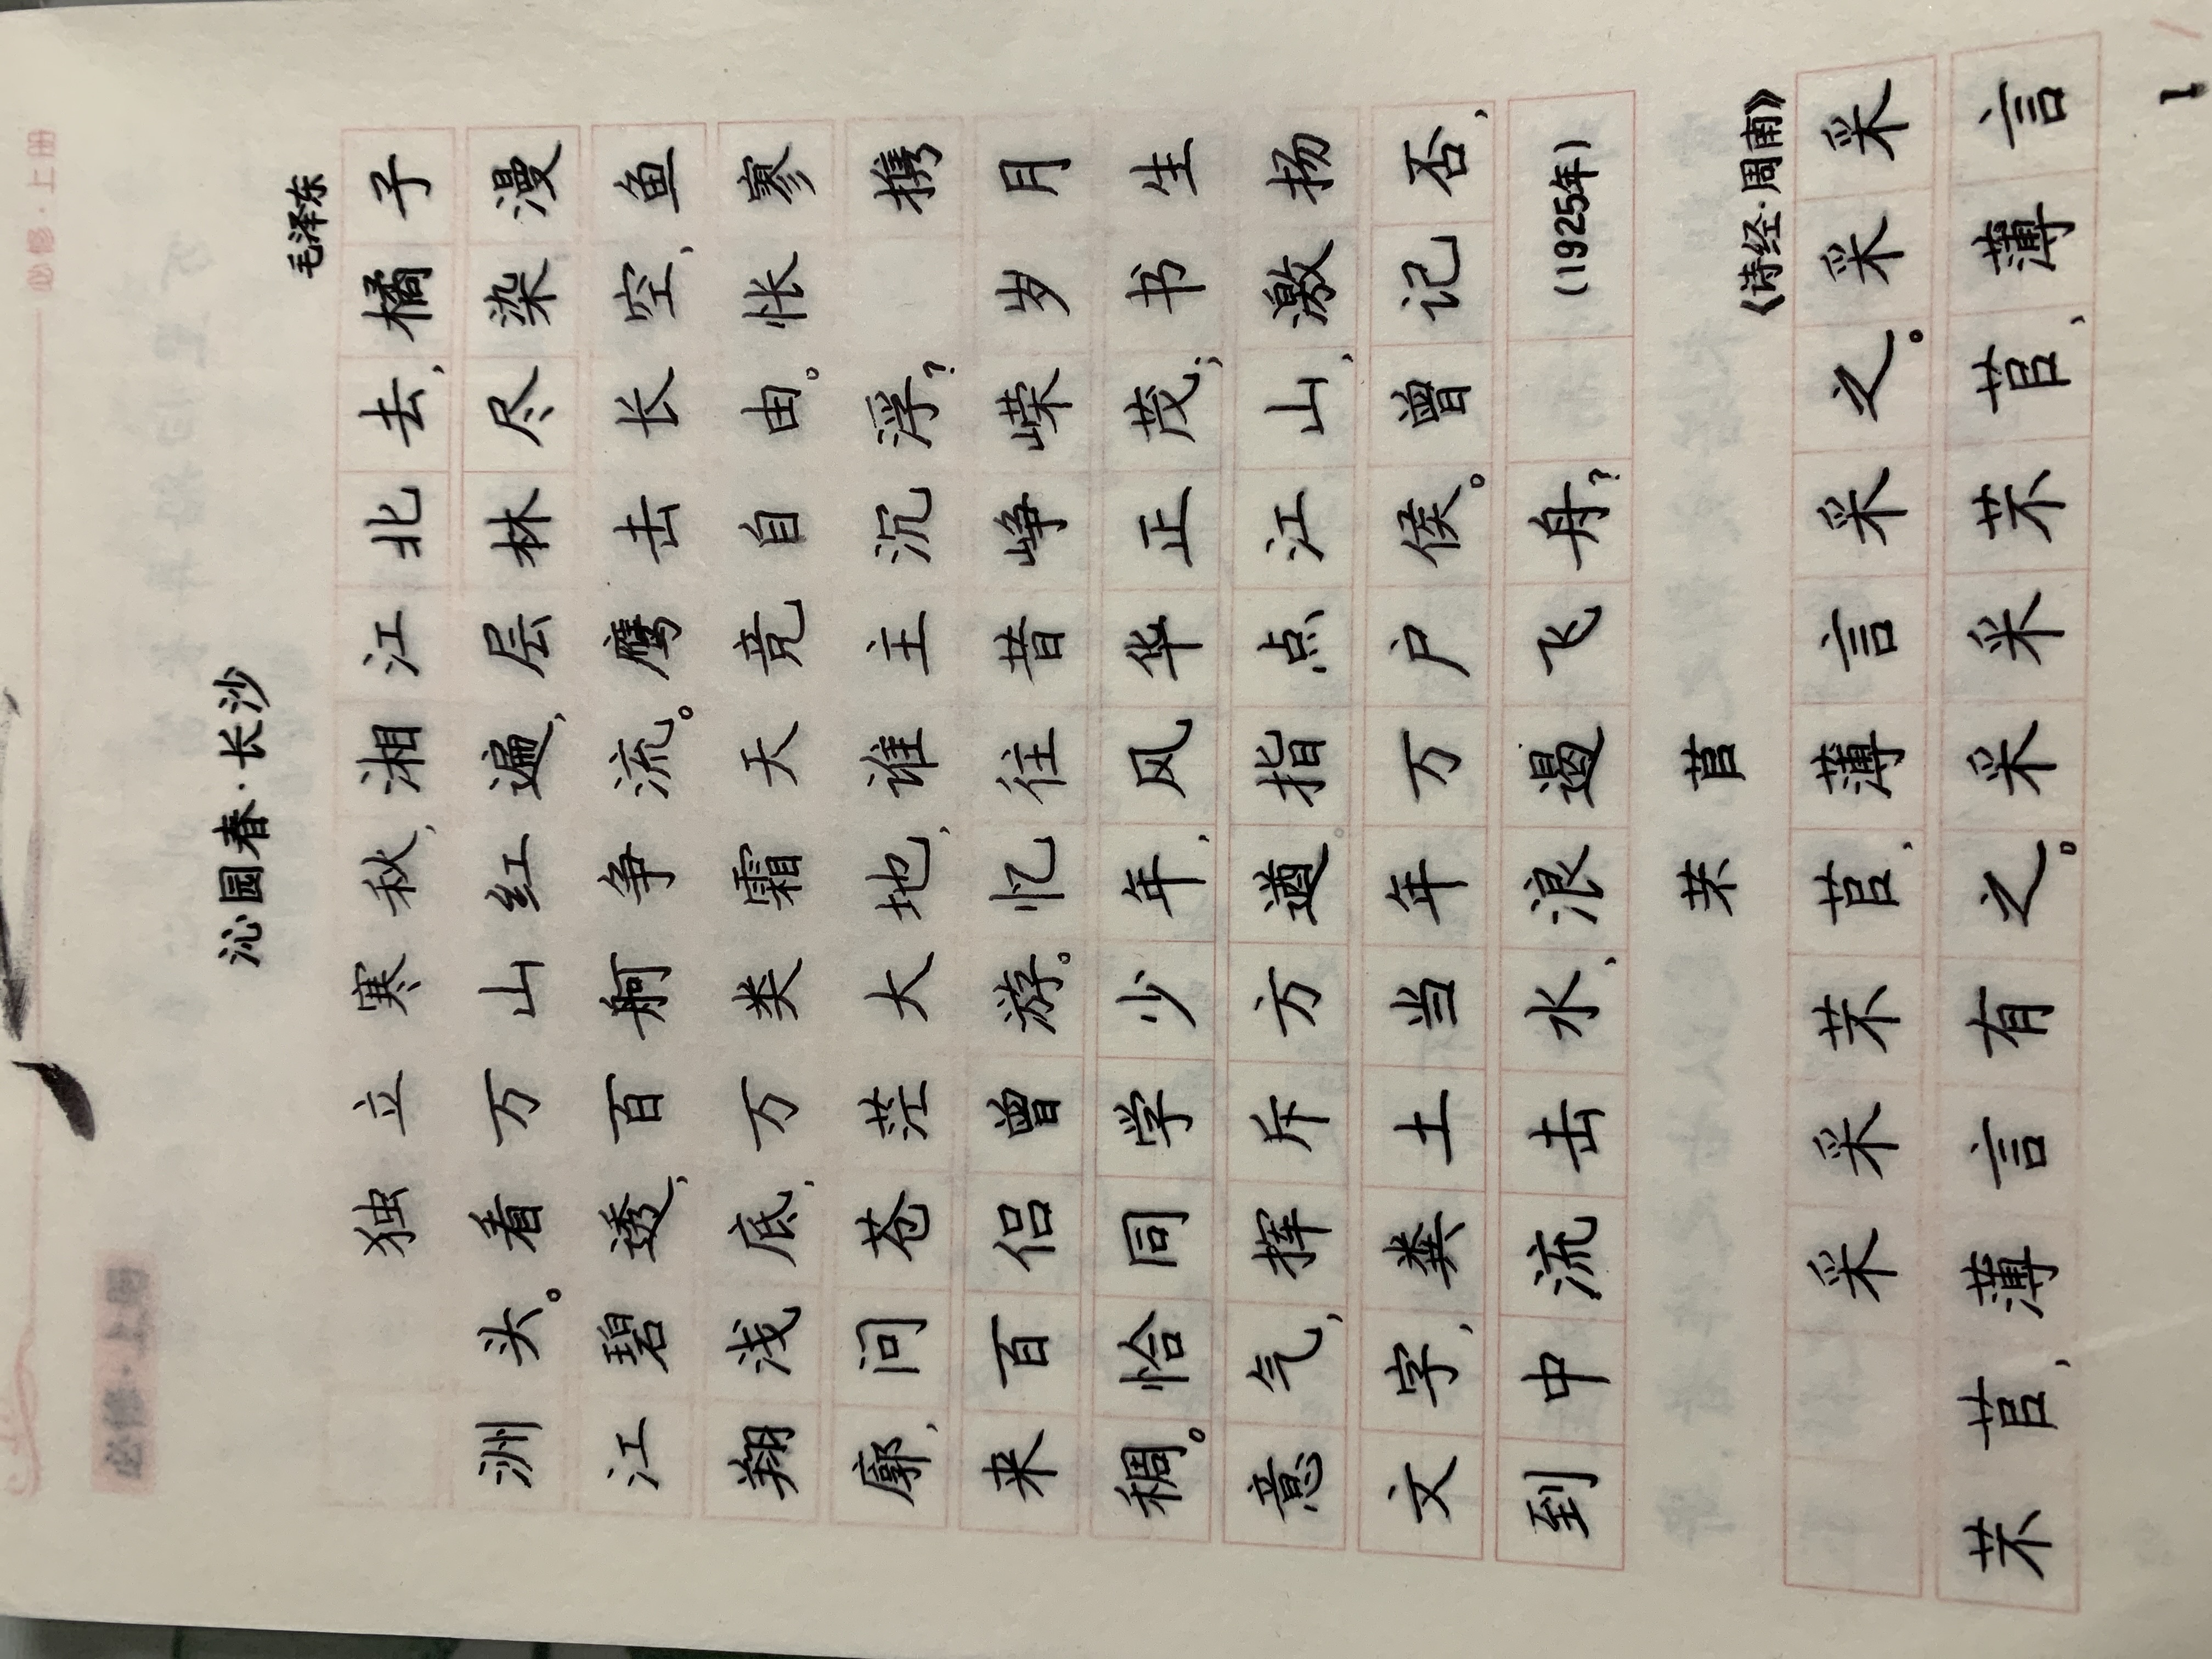 必修·上册
必修·上册
沁园春·长沙
毛泽东
独立寒秋,湘江北去,橘子
洲头。看万山红遍,层林尽染漫
江碧透,百舸争流。鹰击长空,鱼
翔浅底,万类霜天竞自由。怅寥
廓,问苍茫大地,谁主沉浮?携
来百侣曾游。忆往昔峥嵘岁月
稠。恰同学少年,风华正茂;书生
意气,挥斥方遒。指点江山,激扬
文字,粪土当年万户侯。曾记否,
到中流击水,浪遏飞舟?(1925年)
芣苢
《诗经·周南》
采采芣苢,薄言采之。采采
芣苢,薄言有之。采采芣苢,薄言
1